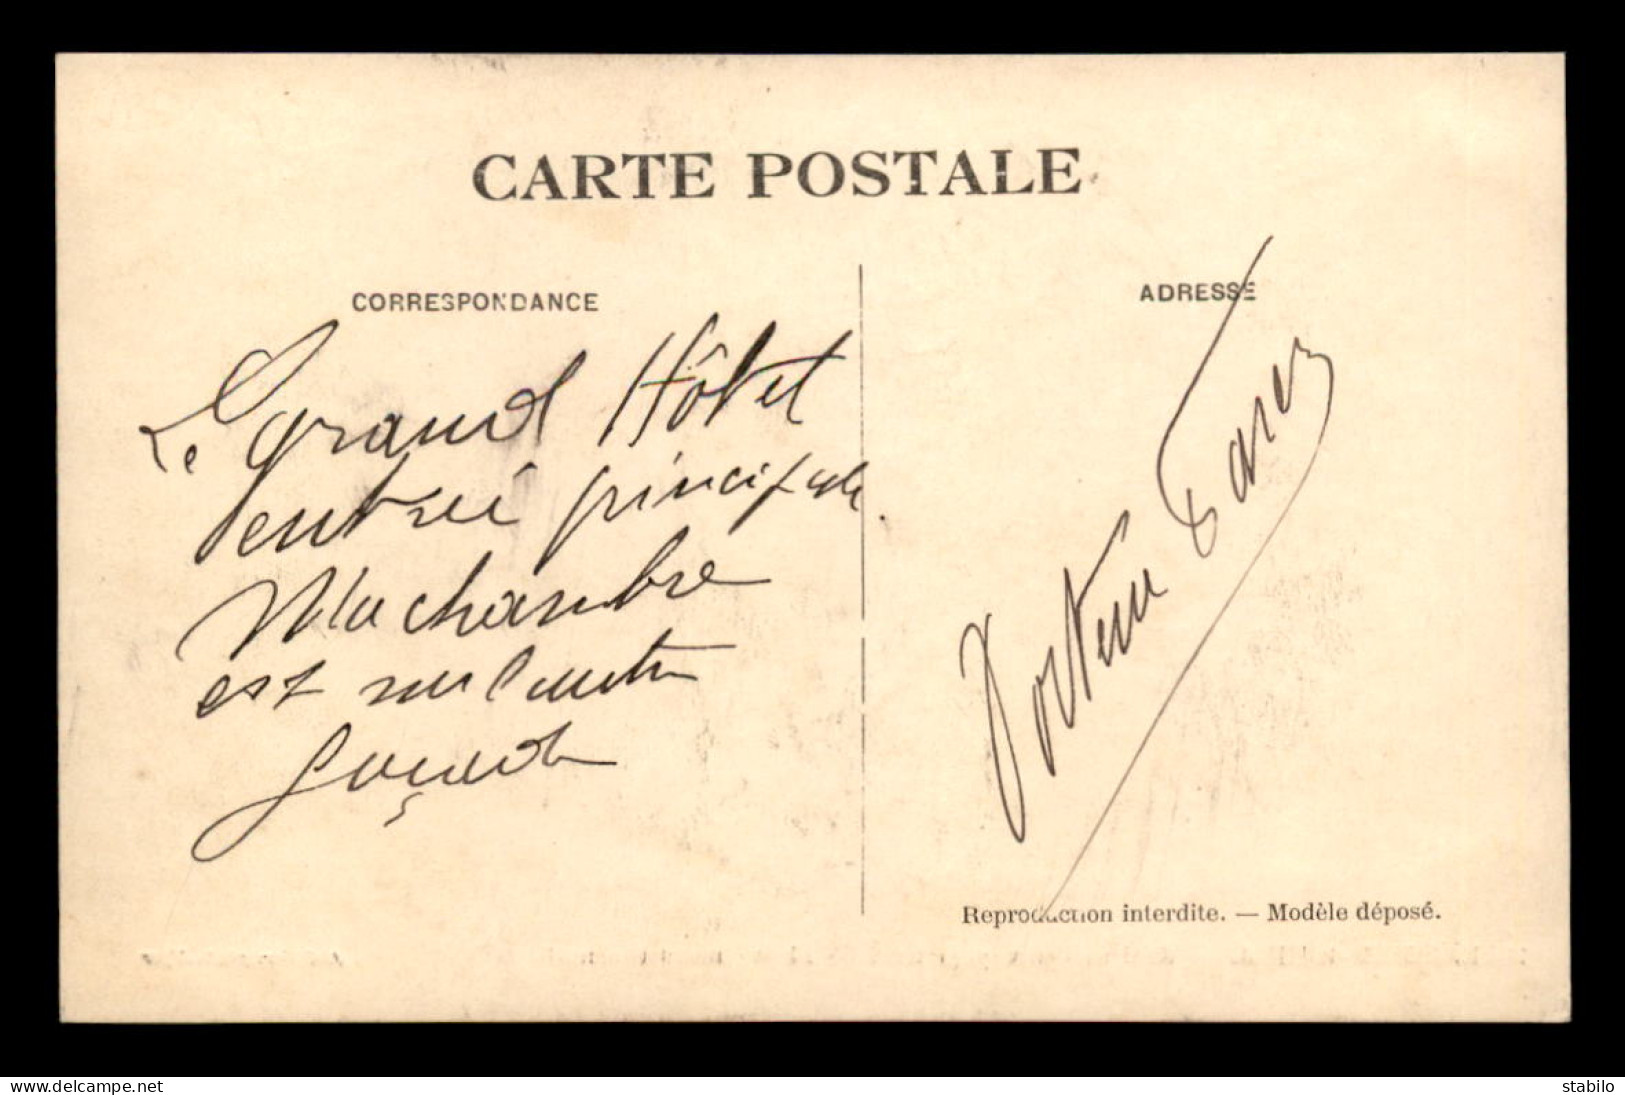 CARTE POSTALE
CORRESPONDANCE
ADRESSE
Le grand Hôtel
entrée principale.
Ma chambre
est sur l'autre
façade
Reproduction interdite. — Modèle déposé.
www.delcampe.net
stabilo